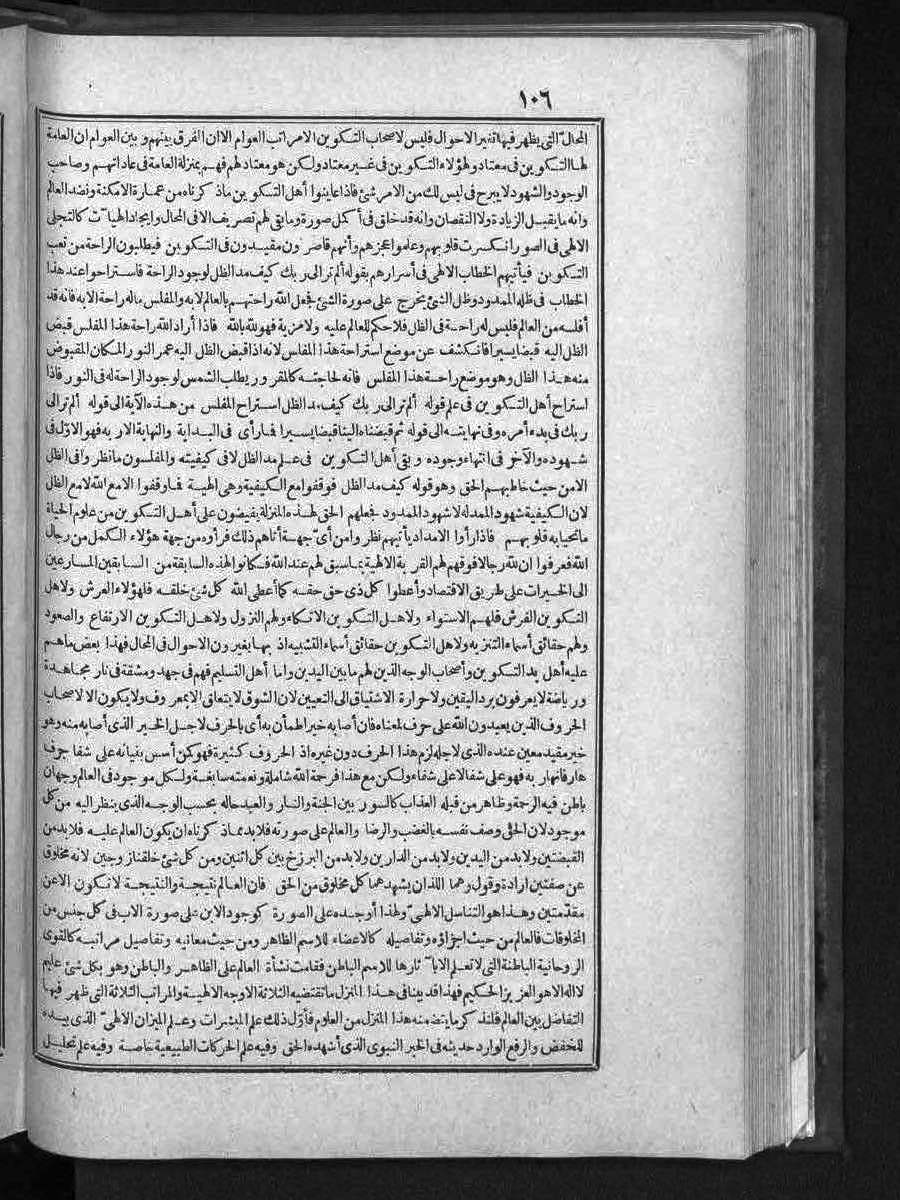 ١٠٦
المحال التى يظهر فيها تغير الاحوال فليس لاصحاب التكوين الامراتب العوام الاان الفرق بينهم وبين العوام ان العامة
لها التكوين فى معتاد ولهؤلاء التكوين فى غير معتاد ولكن هو معتاد لهم فهم بمنزلة العامة فى عاداتهم وصاحب
الوجود والشهود لا يبرح فى ليس لك من الامر شئ فاذا عاينوا أهل التكوين ماذكرناه من عمارة الامكنة ونضد العالم
وانه ما يقبل الزيادة ولا النقصان وانه قد خلق فى أكمل صورة وما بقى لهم تصريف الافى المحال وايجاد الهيات كالتجلى
الالهى فى الصور انكسرت قلوبهم وعلموا عجزهم وأنهم قاصرون مقيدون فى التكوين فيطلبون الراحة من تعب
التكوين فيأتيهم الخطاب الالهى فى أسرارهم بقوله ألم تر الى ربك كيف مد الظل لوجود الراحة فاستراحوا عند هذا
الخطاب فى ظله الممدود وظل الشئ يخرج على صورة الشئ فجعل الله راحتهم بالعالم لابه والمفلس ماله راحة الابه فانه قد
أفلسه من العالم فليس له راحة فى الظل فلاحكم للعالم عليه ولامزية فهو لله بالله فاذا أراد الله راحة هذا المفلس قبض
الظل اليه قبضا يسيرا فانكشف عن موضع استراحة هذا المفلس لانه اذا قبض الظل اليه عمر النور المكان المقبوض
منه هذا الظل وهو موضع راحة هذا المفلس فانه لحاجته كالمقرور يطلب الشمس لوجود الراحة له فى النور فاذا
استراح أهل التكوين فى علم قوله ألم تر الى ربك كيف مد الظل استراح المفلس من هذه الآية الى قوله ألم تر الى
ربك فى بدء أمره وفى نهايته الى قوله ثم قبضناه الينا قبضا يسيرا فما رأى فى البداية والنهاية الاربه فهو الاوّل فى
شهوده والآخر فى انتهاء وجوده وبقى أهل التكوين فى علم مد الظل لافى كيفيته والمفلسون ما نظروا فى الظل
الامن حيث خاطبهم الحق وهو قوله كيف مد الظل فوقفوا مع الكيفية وهى الهية فما وقفوا الامع الله لامع الظل
لان الكيفية شهود الممد له لاشهود الممدود فجعلهم الحق لهذه المنزلة يفيضون على أهل التكوين من علوم الحياة
ما تحيا به قلوبهم فاذا رأوا الامداد يأتيهم نظروا من أىّ جهة أتاهم ذلك فرأوه من جهة هؤلاء الكمل من رجال
الله فعرفوا ان لله رجالا فوقهم لهم القربة الالهية بما سبق لهم عند الله فكانوا لهذه السابقة من السابقين المسارعين
الى الخيرات على طريق الاقتصاد وأعطوا كل ذى حق حقه كما أعطى الله كل شئ خلقه فلهؤلاء العرش ولاهل
التكوين الفرش فلهم الاستواء ولاهل التكوين الاتكاء ولهم النزول ولاهل التكوين الارتفاع والصعود
ولهم حقائق أسماء التنزيه ولاهل التكوين حقائق أسماء التشبيه اذ بها يغيرون الاحوال فى المحال فهذا بعض ماهم
عليه أهل يد التكوين وأصحاب الوجه الذين لهم ما بين اليدين واما أهل التسليم فهم فى جهد ومشقة فى نار مجاهدة
ورياضة لا يعرفون برد اليقين ولا حرارة الاشتياق الى التعيين لان الشوق لا يتعلق الابمعروف ولا يكون الا لاصحاب
الحروف الذين يعبدون الله على حرف لمعناه فان أصابه خير اطمأن به أى بالحرف لاجل الخير الذى أصابه منه وهو
خير مقيد معين عنده الذى لاجله لزم هذا الحرف دون غيره اذ الحروف كثيرة فهو كمن أسس بنيانه على شفا جرف
هار فانهار به فهو على شفا لا على شفاء ولكن مع هذا فرحة الله شاملة ونعمته سابغة ولكل موجود فى العالم وجهان
باطن فيه الرحمة وظاهر من قبله العذاب كالسور بين الجنة والنار والعبد حاله بحسب الوجه الذى ينظر اليه من كل
موجود لان الحق وصف نفسه بالغضب والرضا والعالم على صورته فلابد مما ذكرناه ان يكون العالم عليه فلابد من
القبضتين ولابد من اليدين ولابد من الدارين ولابد من البرزخ بين كل اثنين ومن كل شئ خلقنا زوجين لانه مخلوق
عن صفتين ارادة وقول وهما اللذان يشهدهما كل مخلوق من الحق فان العالم نتيجة والنتيجة لا تكون الاعن
مقدّمتين وهذا هو التناسل الالهىّ ولهذا أوجده على الصورة كوجود الابن على صورة الاب فى كل جنس من
المخلوقات فالعالم من حيث اجزاؤه وتفاصيله كالاعضاء للاسم الظاهر ومن حيث معانيه وتفاصيل مراتبه كالقوى
الروحانية الباطنة التى لا تعلم الابآثارها للاسم الباطن فقامت نشأة العالم على الظاهر والباطن وهو بكل شئ عليم
لااله الاهو العزيز الحكيم فهذا قد بينا فى هذا المنزل ما تقتضيه الثلاثة الاوجه الالهية والمراتب الثلاثة التى ظهر فيها
التفاضل بين العالم فلنذكر ما يتضمنه هذا المنزل من العلوم فأوّل ذلك علم المبشرات وعلم الميزان الالهىّ الذى بيده
للخفض والرفع الوارد حديثه فى الخبر النبوى الذى أشهده الحق وفيه علم الحركات الطبيعية خاصة وفيه علم تحليل